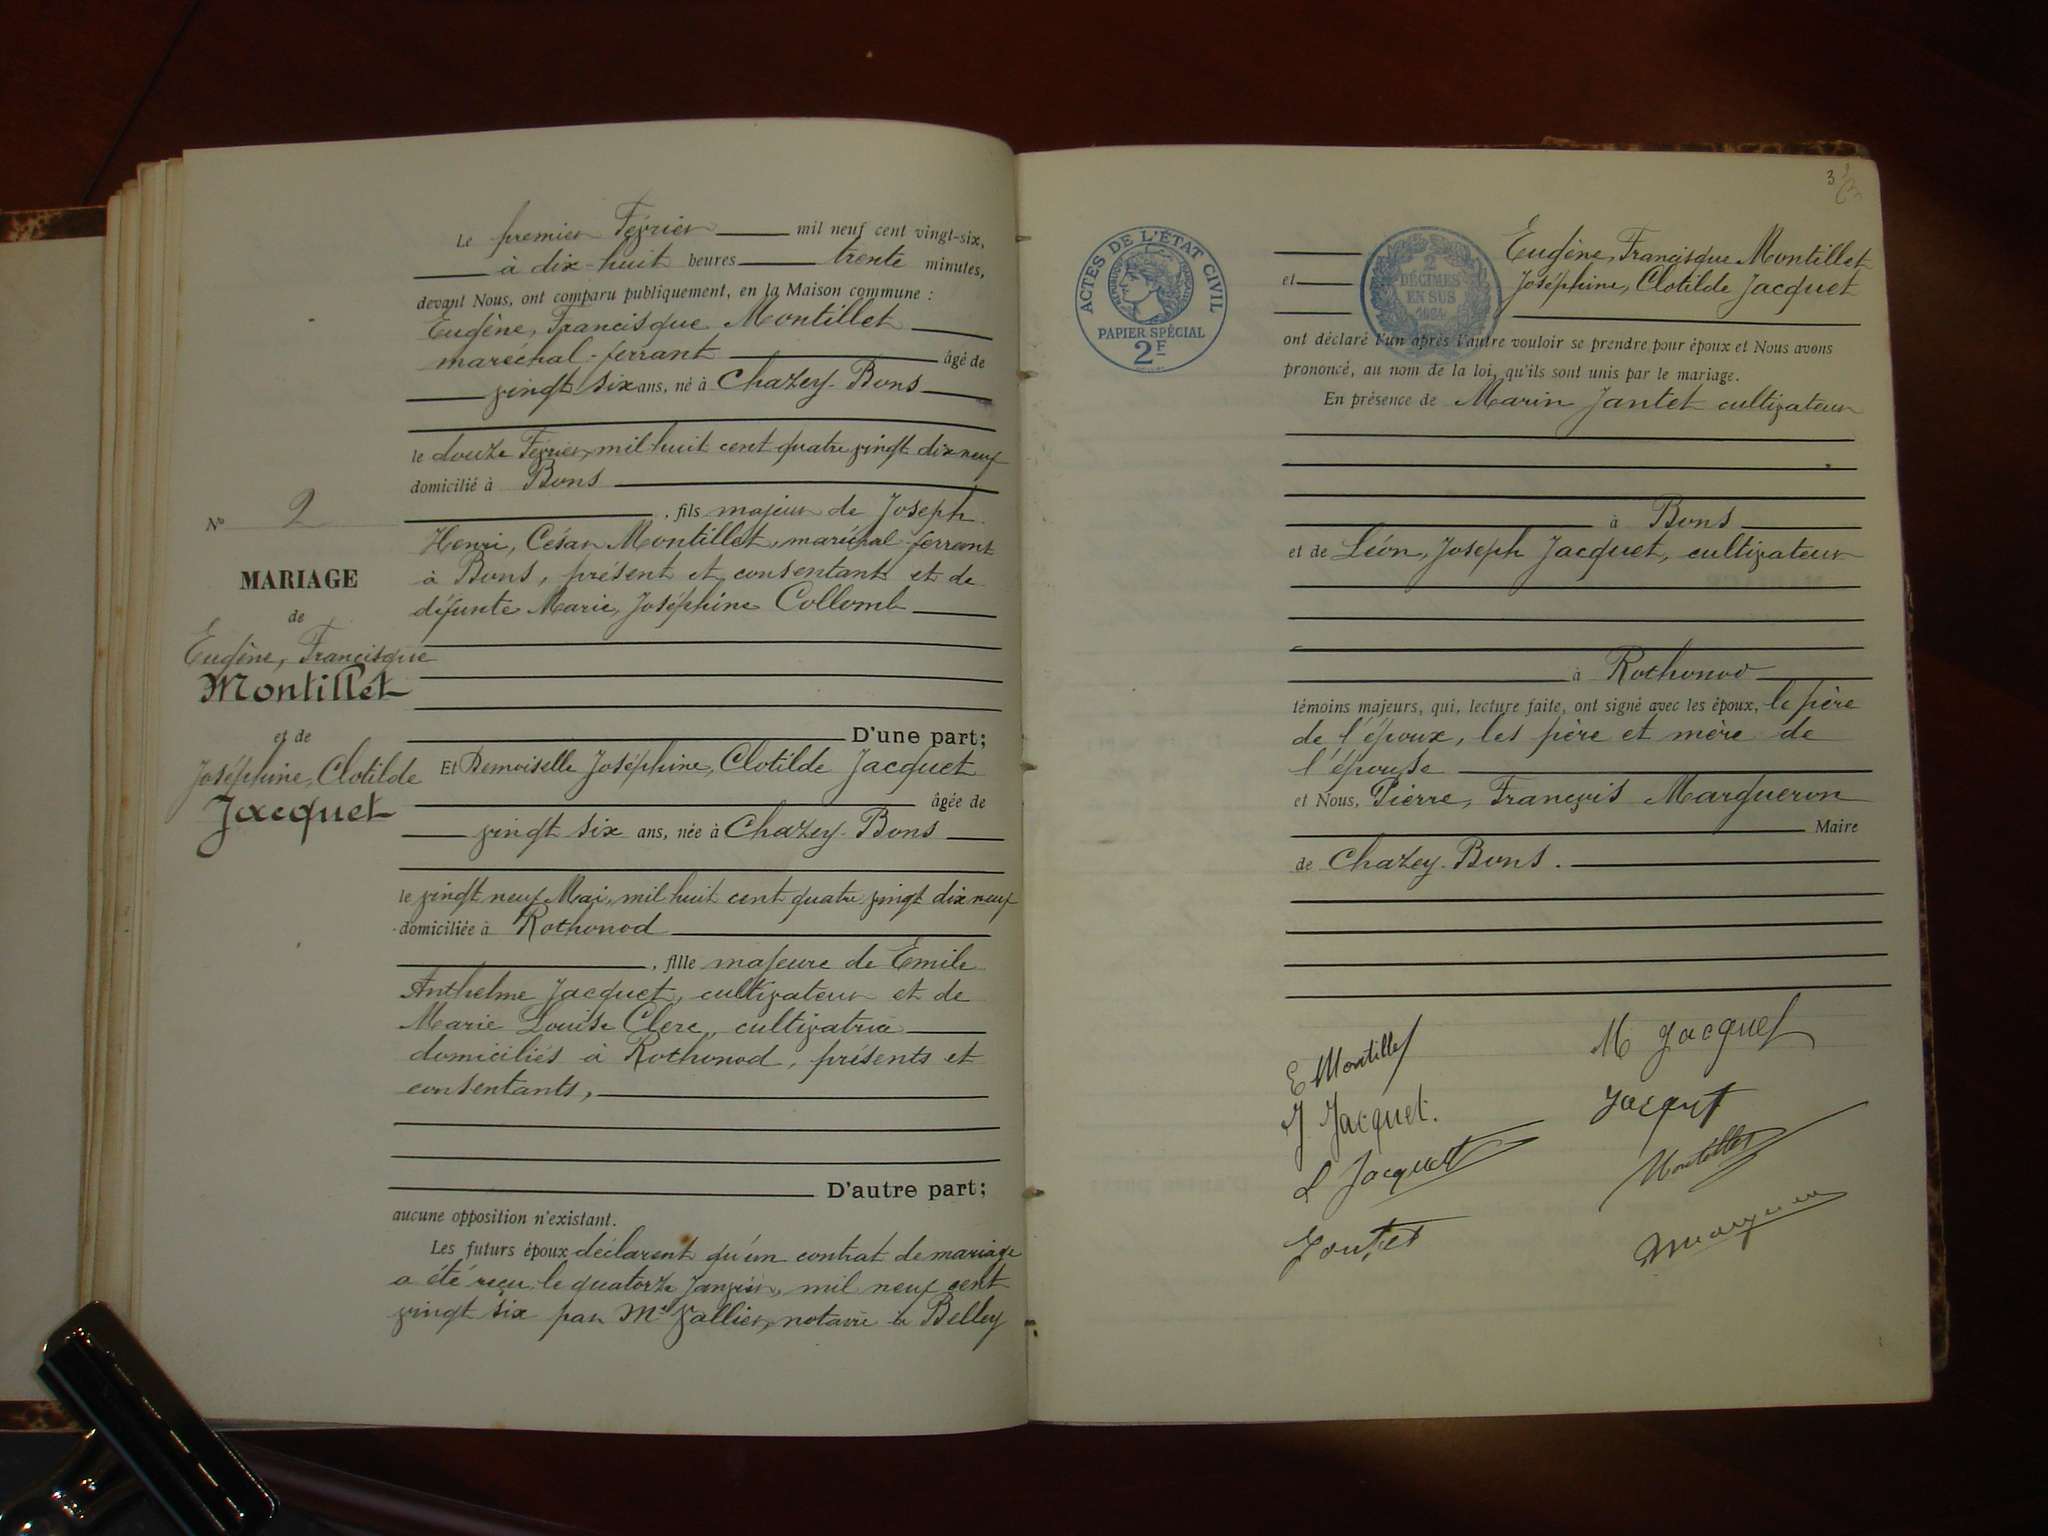 Le premier Février mil neuf cent vingt-six,
à dix-huit heures trente minutes,
devant Nous, ont comparu publiquement, en la Maison commune :
Eugène, Francisque Montillet
maréchal-ferrant âgé de
vingt six ans, né à Chazey-Bons
le douze Février, mil huit cent quatre vingt dix neuf
domicilié à Bons
, fils majeur de Joseph
Henri, César Montillet, maréchal-ferrant
à Bons, présent et consentant et de
défunte Marie, Joséphine Collomb
D'une part;
Et Demoiselle Joséphine, Clotilde Jacquet
âgée de
vingt six ans, née à Chazey-Bons
le vingt neuf Mai, mil huit cent quatre vingt dix neuf
domiciliée à Rothonod
, fille majeure de Emile
Anthelme Jacquet, cultivateur et de
Marie Louise Clerc, cultivatrice
domiciliés à Rothonod, présents et
consentants,
D'autre part;
aucune opposition n'existant.
Les futurs époux déclarent qu'un contrat de mariage
a été reçu le quatorze Janvier, mil neuf cent
vingt six par Me Vallier, notaire à Belley
No 2
MARIAGE
de
Eugène, Francisque
Montillet
et de
Joséphine, Clotilde
Jacquet
3
ACTES DE L'ÉTAT CIVIL
PAPIER SPÉCIAL
2F
2
DÉCIMES
EN SUS
1924
Eugène, Francisque Montillet
et Joséphine, Clotilde Jacquet
ont déclaré l'un après l'autre vouloir se prendre pour époux et Nous avons
prononcé, au nom de la loi, qu'ils sont unis par le mariage.
En présence de Marin Jantet cultivateur
à Bons
et de Léon, Joseph Jacquet, cultivateur
à Rothonod
témoins majeurs, qui, lecture faite, ont signé avec les époux, le père
de l'époux, les père et mère de
l'épouse
et Nous, Pierre, François Margueron
Maire
de Chazey-Bons.
E Montillet
M Jacquet
J. Jacquet.
Jacquet
L Jacquet
Montillet
Jantet
Margueron